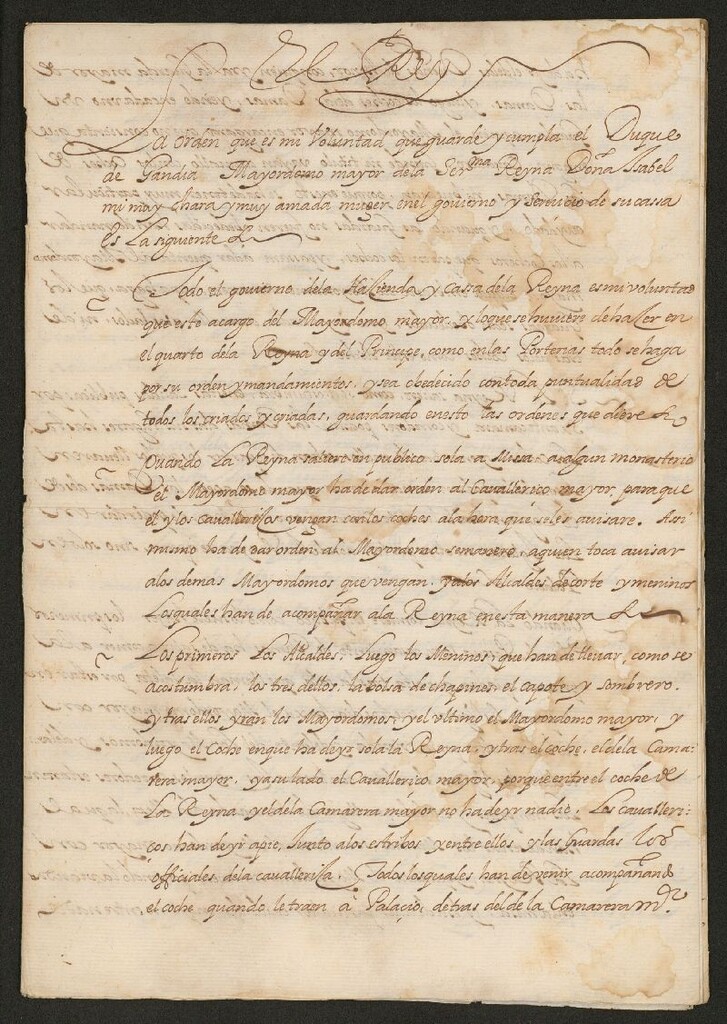 El Rey
La orden que es mi Voluntad, que guarde y cumpla el Duque
de Gandia Mayordomo mayor dela Ser.ma Reyna Doña Isabel
mi muy chara y muy amada muger enel govierno y servicio de su cassa
es La siguiente
Todo el govierno dela Hazienda y cassa dela Reyna es mi voluntad
que esté a cargo del Mayordomo mayor, y lo que se huviere de hazer en
el quarto dela Reyna y del Principe, como en las Porterias todo se haga
por su orden y mandamientos, y sea obedecido con toda puntualidad de
todos los criados y criadas, guardando en esto las ordenes que diere
Quando La Reyna saliere en publico sola a Missa a algun monasterio
el Mayordomo mayor ha de dar orden al Cavallerico mayor, para que
el y los cavallerizos vengan con los coches ala hora que se les avisare. Assi
mismo ha de dar orden al Mayordomo semanero, a quien toca avisar
alos demas Mayordomos que vengan, Alcaldes de corte y meninos
Los quales han de acompañar ala Reyna en esta manera
Los primeros Los Alcaldes, luego los Meninos, que han de llevar, como se
acostumbra, los tres dellos, la bolsa de chapines, el capote y sombrero.
y tras ellos yran los Mayordomos, y el ultimo el Mayordomo mayor, y
luego el Coche en que ha de yr sola la Reyna, y tras el coche, el dela Cama-
rera mayor, y a su lado el Cavallerico mayor, porque entre el coche de
La Reyna y el dela Camarera mayor no ha de yr nadie. Los cavalleri-
cos, han de yr a pie, Junto alos estribos y entre ellos y las Guardas los
officiales dela cavalleriza. Todos los quales han de venir acompañando
el coche quando le traen à Palacio, detras del de la Camarera m.or